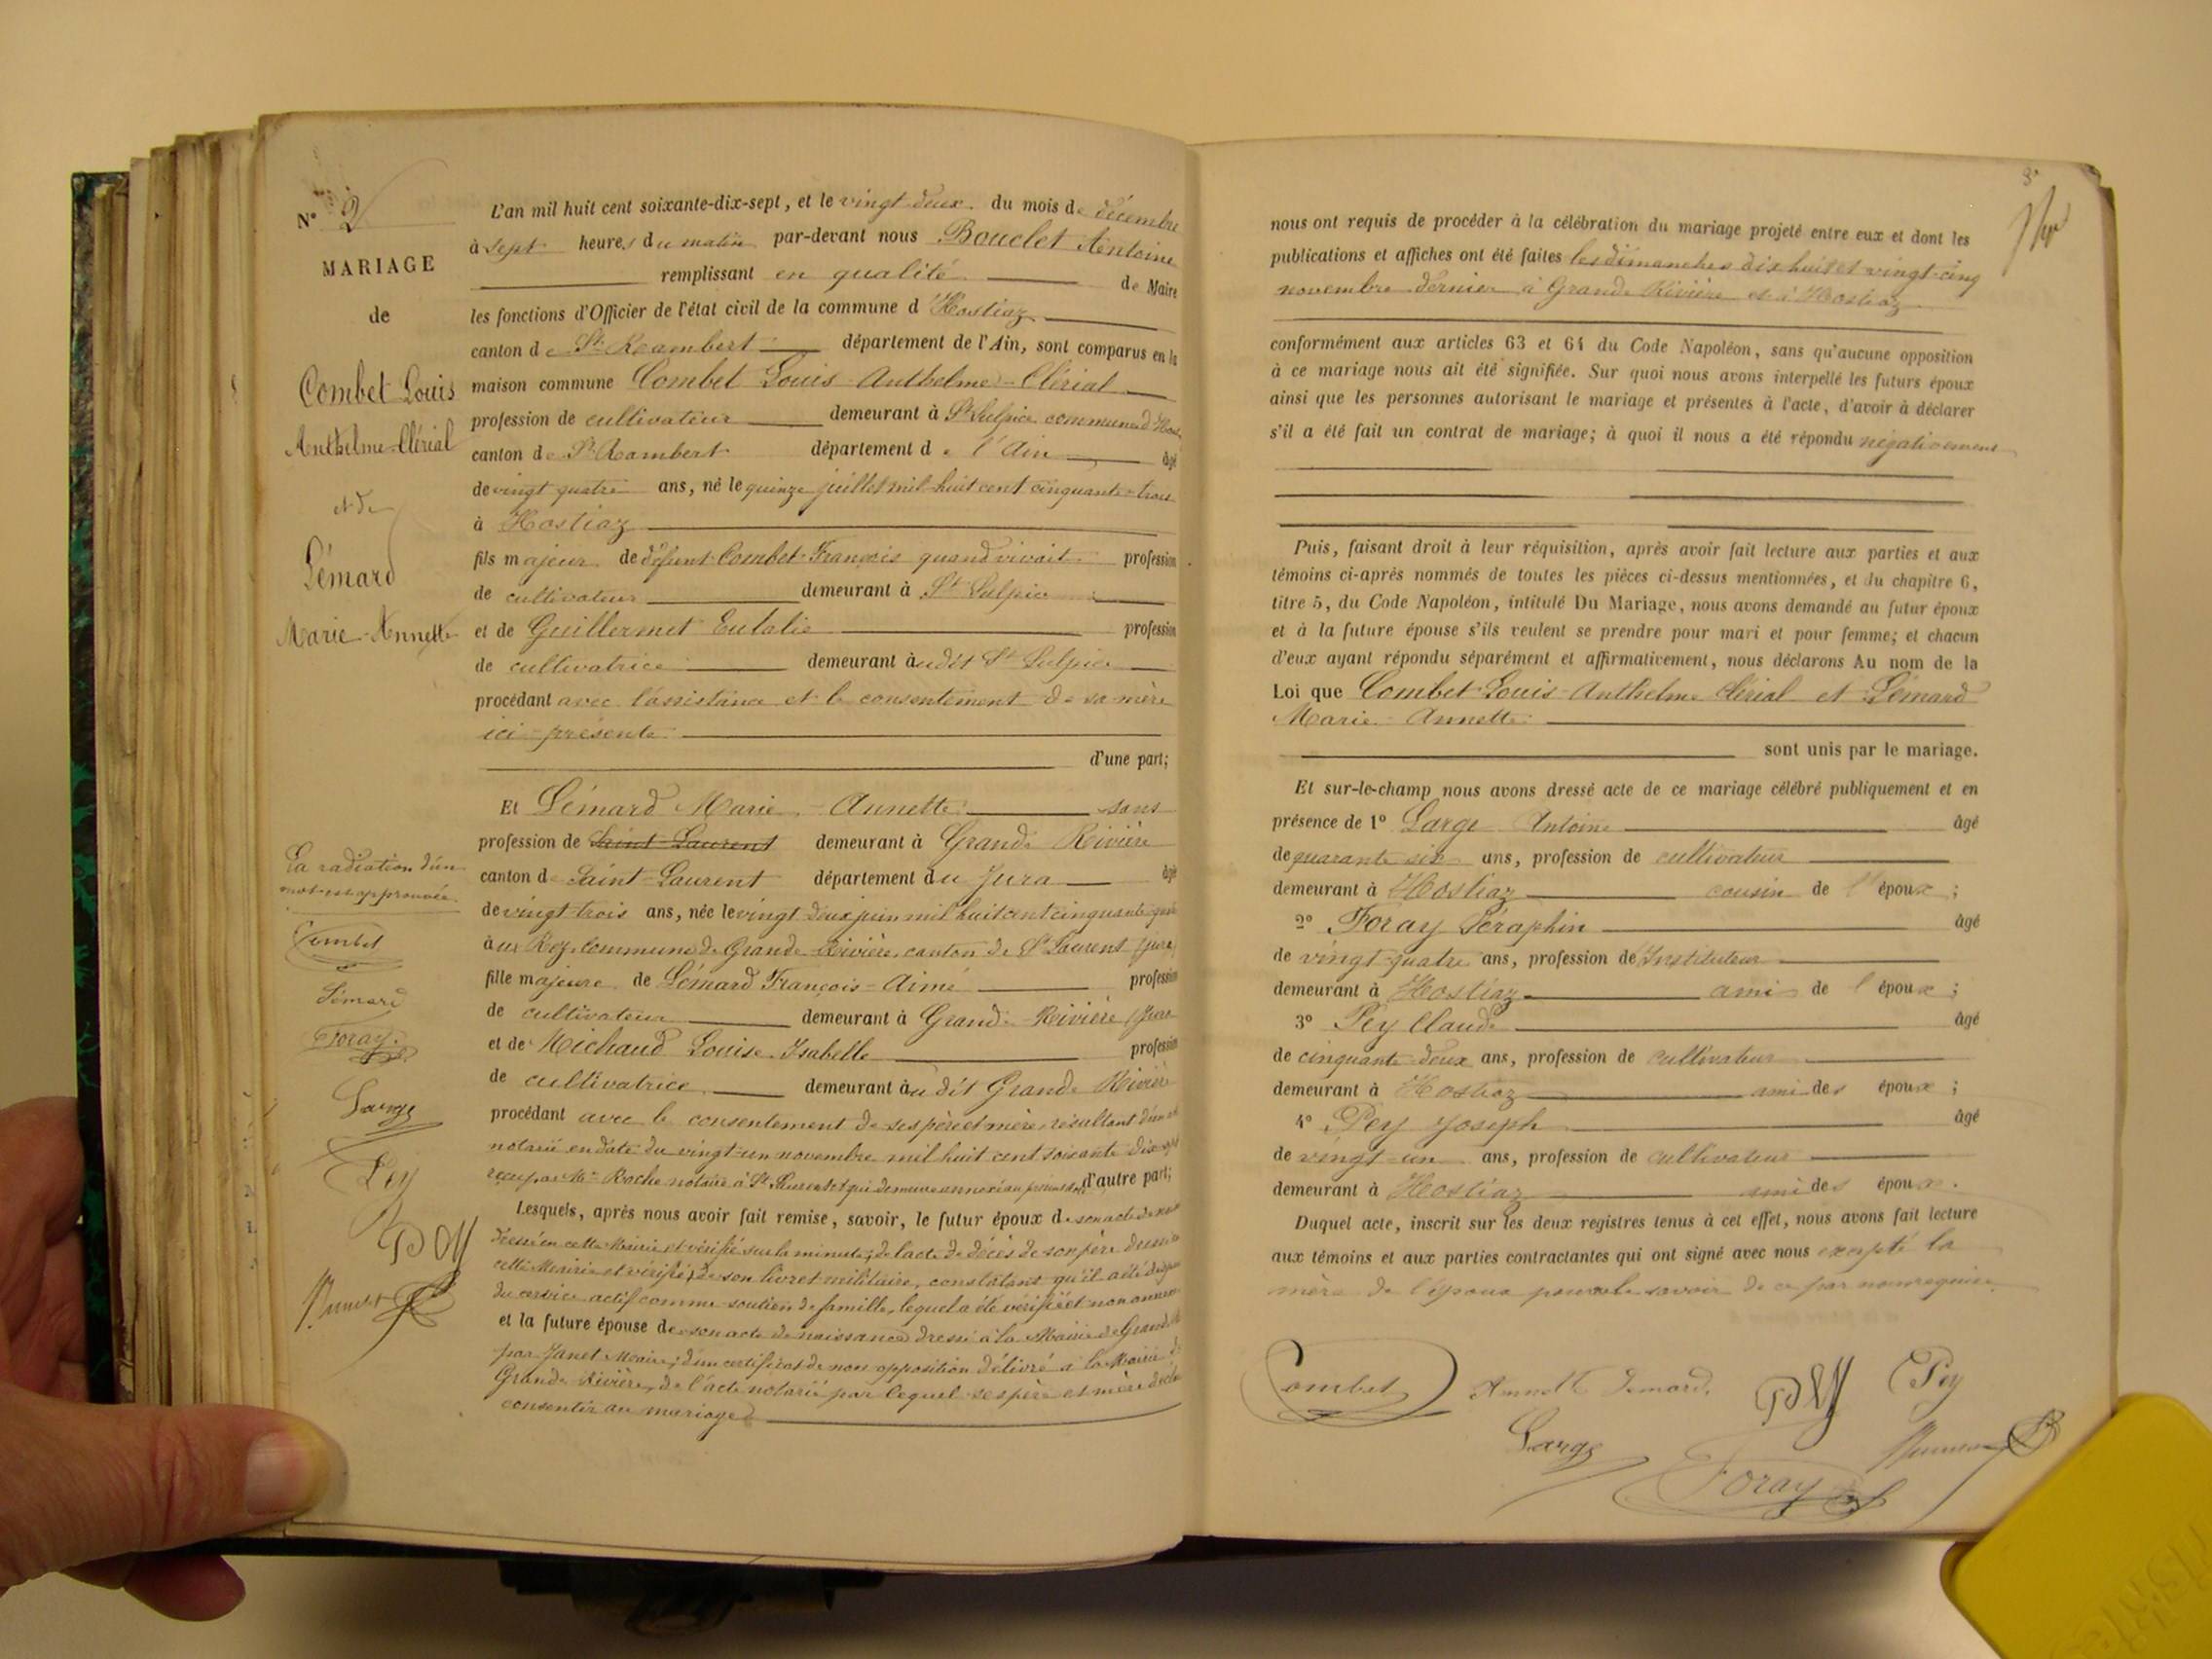 N° 2
MARIAGE
de
Combet Louis
Anthelme-Clérial
et de
Lémard
Marie-Annette
La radiation d'un
mot est approuvée.
Combet
Lémard
Foray
Large
Pey
PEY
L'an mil huit cent soixante-dix-sept, et le vingt deux du mois de décembre
à sept heures du matin par-devant nous Bouclet Antoine
remplissant en qualité de Maire
les fonctions d'Officier de l'état civil de la commune d'Hostiaz
canton de St Rambert département de l'Ain, sont comparus en la
maison commune Combet Louis Anthelme-Clérial
profession de cultivateur demeurant à St Sulpice commune d'Hos
canton de St Rambert département de l'Ain âgé
de vingt quatre ans, né le quinze juillet mil huit cent cinquante-trois
à Hostiaz
fils majeur de défunt Combet François quand vivait profession
de cultivateur demeurant à St Sulpice
et de Guillermet Eulalie profession
de cultivatrice demeurant à udit St Sulpice
procédant avec l'assistance et le consentement de sa mère
ici présente
d'une part;
Et Lémard Marie-Annette sans
profession de Saint-Laurent demeurant à Grande Rivière
canton de Saint-Laurent département du Jura âgé
de vingt-trois ans, née le vingt-deux juin mil huit cent cinquante
à commune de Grande-Rivière, canton de St Laurent (Jura)
fille majeure de Lémard François-Aimé profession
de cultivateur demeurant à Grande-Rivière (Jura
et de Michaud Louise-Isabelle profession
de cultivatrice demeurant à udit Grande Rivière
procédant avec le consentement de ses père et mère, résultant d'un
notarié en date du vingt-un novembre mil huit cent soixante dix-sept
reçu par Me Roche notaire à St Laurent et qui demeure annexé au présent d'autre part;
Lesquels, après nous avoir fait remise, savoir, le futur époux de son acte de
dressé en cette Mairie et vérifié sur la minute; de l'acte de décès de son père
cette Mairie et vérifié; de son livret militaire, constatant qu'il a été
du service actif comme soutien de famille, lequel a été vérifié et non annexé
et la future épouse de son acte de naissance dressé à la Mairie de Grande
par Janet Maire; d'un certificat de non opposition délivré à la Mairie de
Grande-Rivière, de l'acte notarié par lequel ses père et mère
consentir au mariage
nous ont requis de procéder à la célébration du mariage projeté entre eux et dont les
publications et affiches ont été faites les dimanches dix huit et vingt-cinq
novembre dernier à Grande Rivière et à Hostiaz
conformément aux articles 63 et 64 du Code Napoléon, sans qu'aucune opposition
à ce mariage nous ait été signifiée. Sur quoi nous avons interpellé les futurs époux
ainsi que les personnes autorisant le mariage et présentes à l'acte, d'avoir à déclarer
s'il a été fait un contrat de mariage; à quoi il nous a été répondu négativement
Puis, faisant droit à leur réquisition, après avoir fait lecture aux parties et aux
témoins ci-après nommés de toutes les pièces ci-dessus mentionnées, et du chapitre 6,
titre 5, du Code Napoléon, intitulé Du Mariage, nous avons demandé au futur époux
et à la future épouse s'ils veulent se prendre pour mari et pour femme; et chacun
d'eux ayant répondu séparément et affirmativement, nous déclarons Au nom de la
Loi que Combet Louis-Anthelme Clérial et Lémard
Marie-Annette
sont unis par le mariage.
Et sur-le-champ nous avons dressé acte de ce mariage célébré publiquement et en
présence de 1° Large Antoine âgé
de quarante six ans, profession de cultivateur
demeurant à Hostiaz cousin de l'époux;
2° Foray Séraphin âgé
de vingt-quatre ans, profession d'Instituteur
demeurant à Hostiaz ami de l'époux;
3° Pey Claude âgé
de cinquante deux ans, profession de cultivateur
demeurant à Hostiaz ami des époux;
4° Pey Joseph âgé
de vingt-un ans, profession de cultivateur
demeurant à Hostiaz ami des époux.
Duquel acte, inscrit sur les deux registres tenus à cet effet, nous avons fait lecture
aux témoins et aux parties contractantes qui ont signé avec nous excepté la
mère de l'époux pour ne le savoir de ce par nous requise.
Combet Annette Lémard PEY Pey
Large
Foray